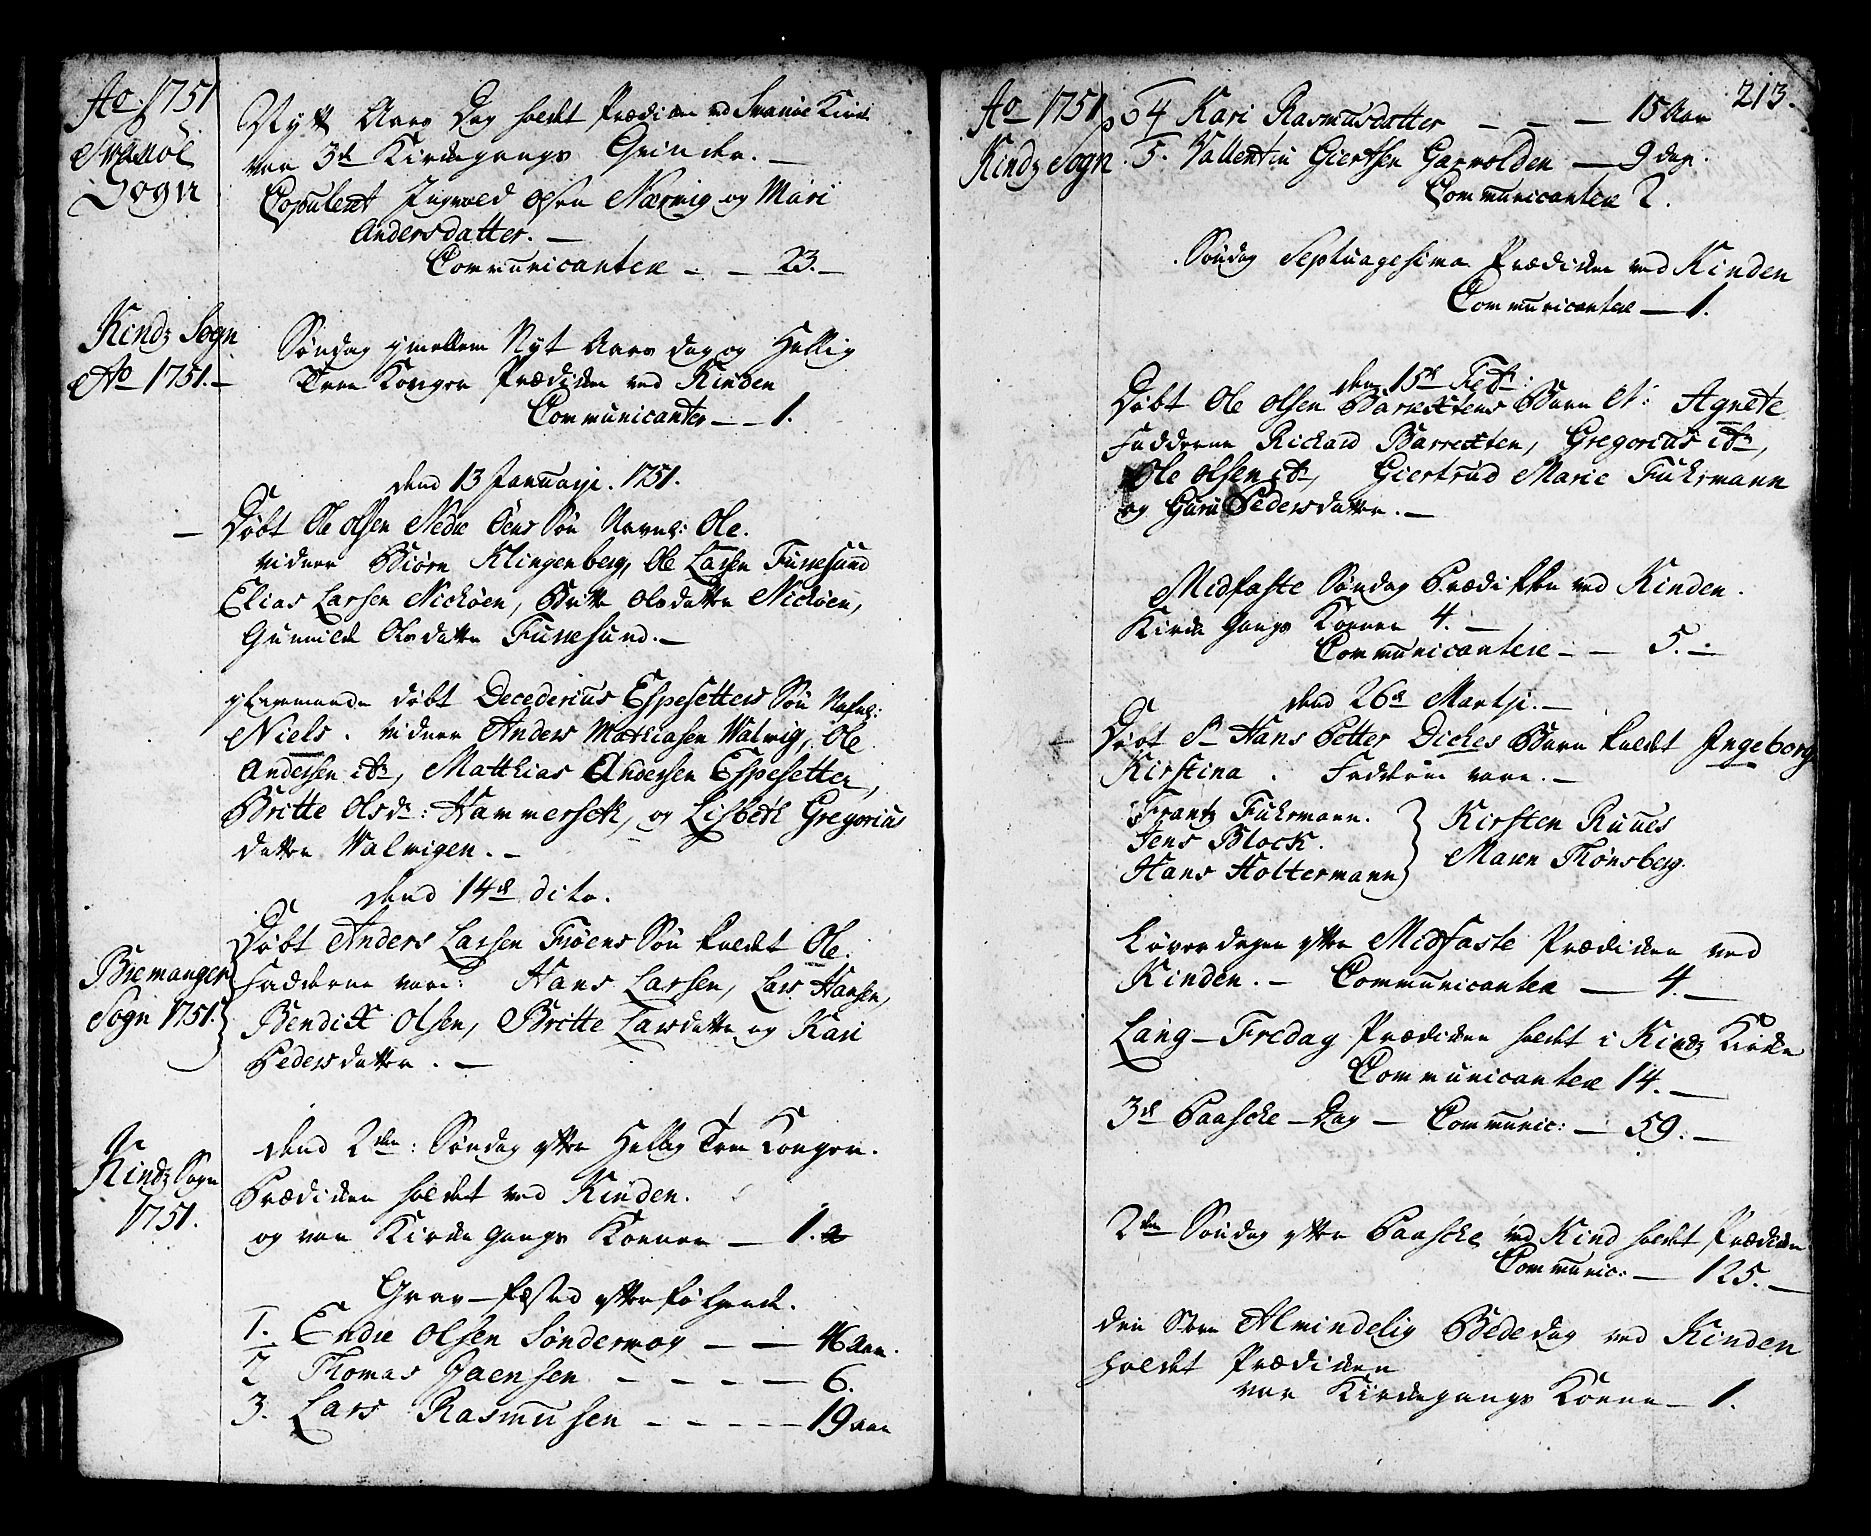 Ao 1751
Svanöe
Sogn
Nytt Aars Dag holdt Prædicken ved Svanöe Kirke
var 3de Kirkegangs Qvinder. —
Copulent Ingvald Olsen Nærvig og Mari
Andersdatter. —
Communicantere — — 23. —
Kindz Sogn
Ao 1751. —
Söndag imellem Nyt Aars dag og Hellig
Tree Konger Prædicken ved Kinden
Communicanter — — 1.
dend 13 Januarji. 1751.
— Döbt Ole Olsen Nedre Sön Navnl: Ole.
vidner Biörn Klingenberg, Ole Larsen Furresund
Elias Larsen Nicköen, Britte Olsdatter Nicköen,
Gunnild Olsdatter Furresund. —
hiemmende döbt Decederius Espesetters Sön Nafnl:
Niels. vidner Anders Mathiasen Valvig, Ole
Andersen ibd, Matthias Andersen Espesetter,
Britte Olsdr: Hammersett, og Lisbeth Gregorius
datter Valvigen. —
dend 14de dito.
Bremanger
Sogn 1751.
Döbt Anders Larsen Fröens Sön kaldet Ole.
Fadderne vare: Hans Larsen, Lars Hansen,
Bendix Olsen, Britte Larsdatter og Kari
Pedersdatter. —
Kindz Sogn
1751.
dend 2den: Söndag efter Hellig Tree Konger.
Prædicken holdet ved Kinden.
og var Kirke gangs Konner — 1.
Grav-fæsted efterfölgende.
1. Endre Olsen Söndervog — — 46 Aar.
2 Thomas Jaensen — — — — 6.
3. Lars Rasmusen — — — — 19 aar
213.
Ao 1751
Kindz Sogn
4 Kari Rasmusdatter — — — 15 Aar
5. Vallentin Giertsen Garvolden — 9 dage.
Communicantere 2.
Söndag Septuagesima Prædicken ved Kinden
Communicantere — 1.
den 15de Febr:
Döbt Ole Olsen Barrextens Barn N: Agnete
Fadderne Rickard Barrexten, Gregorius ibd,
Ole Olsen ibd, Giertrud Marie Fuhrmann
og Guru Pedersdatter. —
Midfaste Söndag Prædicken ved Kinden.
Kirke gangs Konner 4. —
Communicantere — — 5. —
dend 26de Martji. —
Döbt Sr Hans Petter Dickes Barn kaldet Ingeborg
Kirstina. Fadderne vare. —
Frantz Fuhrmann.
Jens Block.
Hans Holtermann
Kirsten Ruues
Maren Thönsberg.
Löverdagen efter Midfaste Prædicken ved
Kinden. — Communicantere — 4. —
Lang-Fredag Prædicken holdt i Kindz Kirke
Communicantere 14. —
3de Paaske-Dag — Communic: — 59. —
2den Söndag efter Paaske ved Kind holdt Prædicken
Communic: — 125. —
den Store Almindelig Bededag ved Kinden
holdet Prædicken
var Kirkegangs Konne — 1.